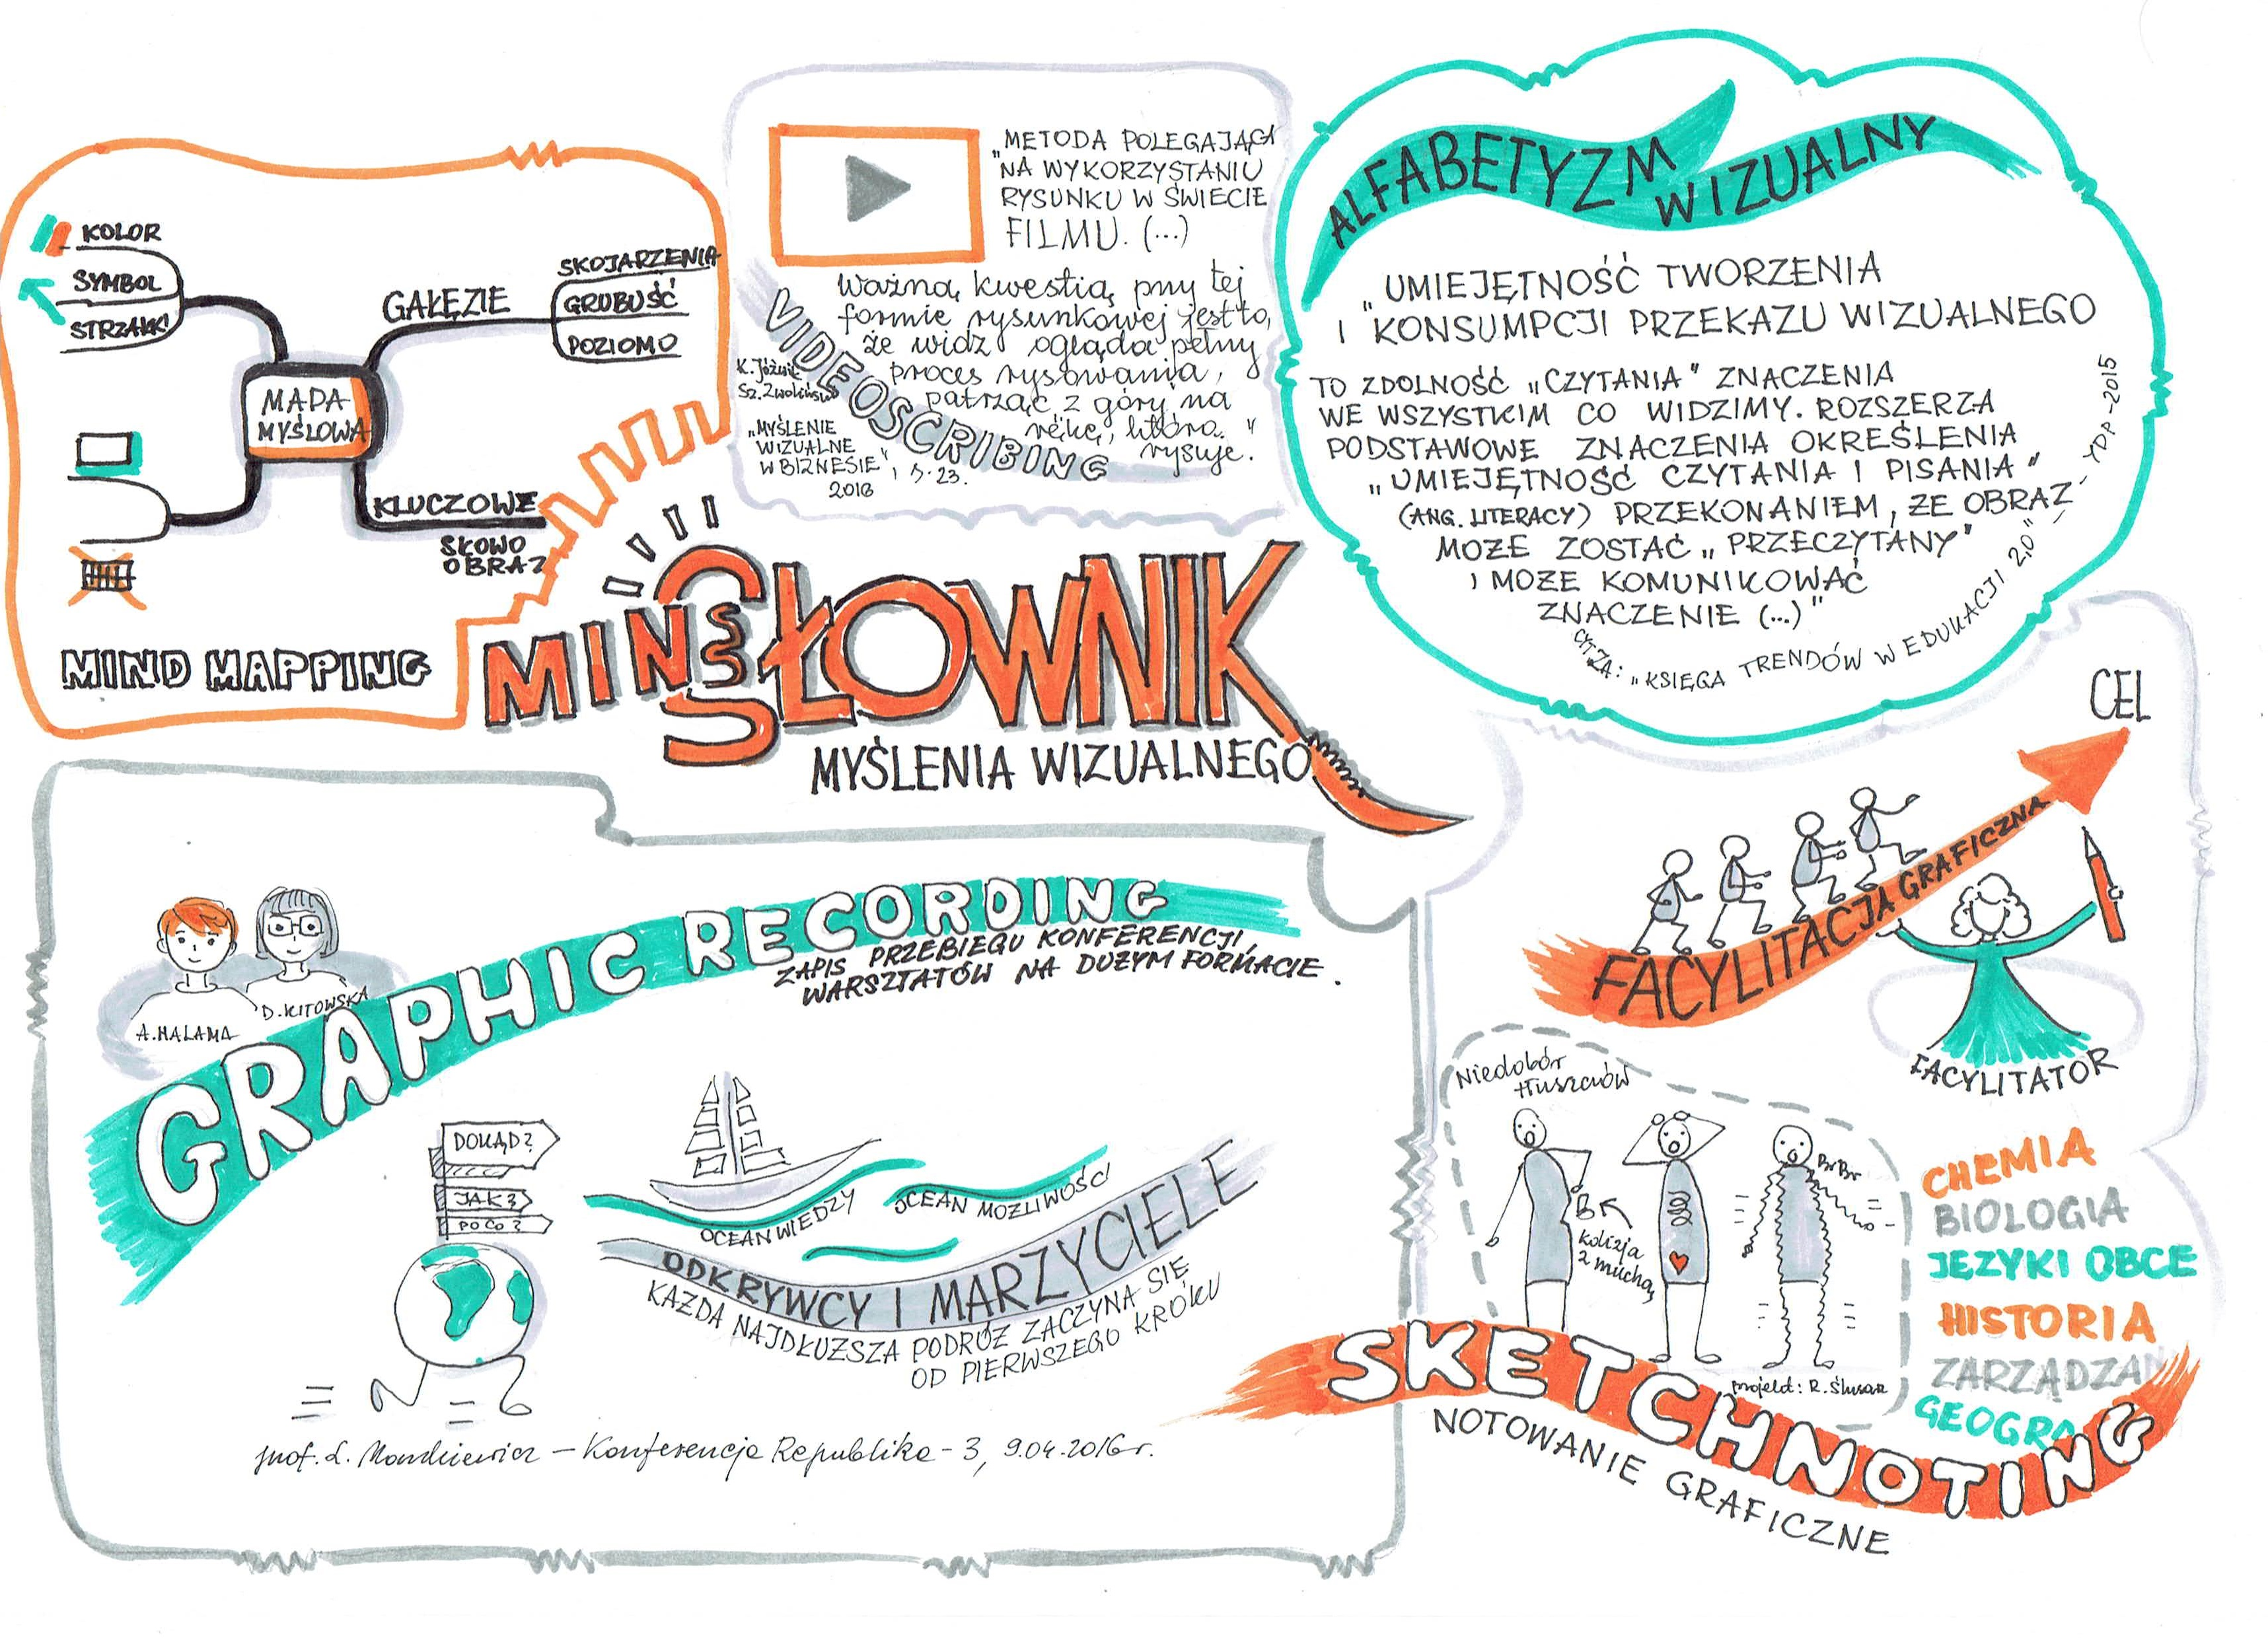 KOLOR
SYMBOL
STRZAŁKI
GAŁĘZIE
SKOJARZENIA
GRUBOŚĆ
POZIOMO
MAPA
MYŚLOWA
KLUCZOWE
SŁOWO
OBRAZ
MIND MAPPING
"METODA POLEGAJĄCA
NA WYKORZYSTANIU
RYSUNKU W ŚWIECIE
FILMU. (...)
Ważną kwestią przy tej
formie rysunkowej jest to,
że widz ogląda pełny
proces rysowania,
patrząc z góry na
rękę, która
rysuje."
VIDEOSCRIBING
K. Jóźwik
Sz. Zwoliński
„MYŚLENIE
WIZUALNE
W BIZNESIE",
2016
s. 23.
ALFABETYZM
WIZUALNY
"UMIEJĘTNOŚĆ TWORZENIA
I KONSUMPCJI PRZEKAZU WIZUALNEGO
TO ZDOLNOŚĆ „CZYTANIA" ZNACZENIA
WE WSZYSTKIM CO WIDZIMY. ROZSZERZA
PODSTAWOWE ZNACZENIA OKREŚLENIA
„UMIEJĘTNOŚĆ CZYTANIA I PISANIA"
(ANG. LITERACY) PRZEKONANIEM, ŻE OBRAZ
MOŻE ZOSTAĆ „PRZECZYTANY"
I MOŻE KOMUNIKOWAĆ
ZNACZENIE (...)"
CYT. ZA: „KSIĘGA TRENDÓW W EDUKACJI 2,0" - YDP-2015
MINI
SŁOWNIK
MYŚLENIA WIZUALNEGO
A. HALAMA
D. KITOWSKA
GRAPHIC RECORDING
ZAPIS PRZEBIEGU KONFERENCJI,
WARSZTATÓW NA DUŻYM FORMACIE.
DOKĄD?
JAK?
PO CO?
OCEAN WIEDZY
OCEAN MOŻLIWOŚCI
ODKRYWCY I MARZYCIELE
KAŻDA NAJDŁUŻSZA PODRÓŻ ZACZYNA SIĘ
OD PIERWSZEGO KROKU
prof. L. Mankiewicz – Konferencja Republika - 3, 9.04.2016 r.
CEL
FACYLITACJA GRAFICZNA
FACYLITATOR
Niedobór
tłuszczów
kolizja
z muchą
BrBr
projekt: R. Ślusar
CHEMIA
BIOLOGIA
JĘZYKI OBCE
HISTORIA
ZARZĄDZAN
GEOGRA
SKETCHNOTING
NOTOWANIE GRAFICZNE